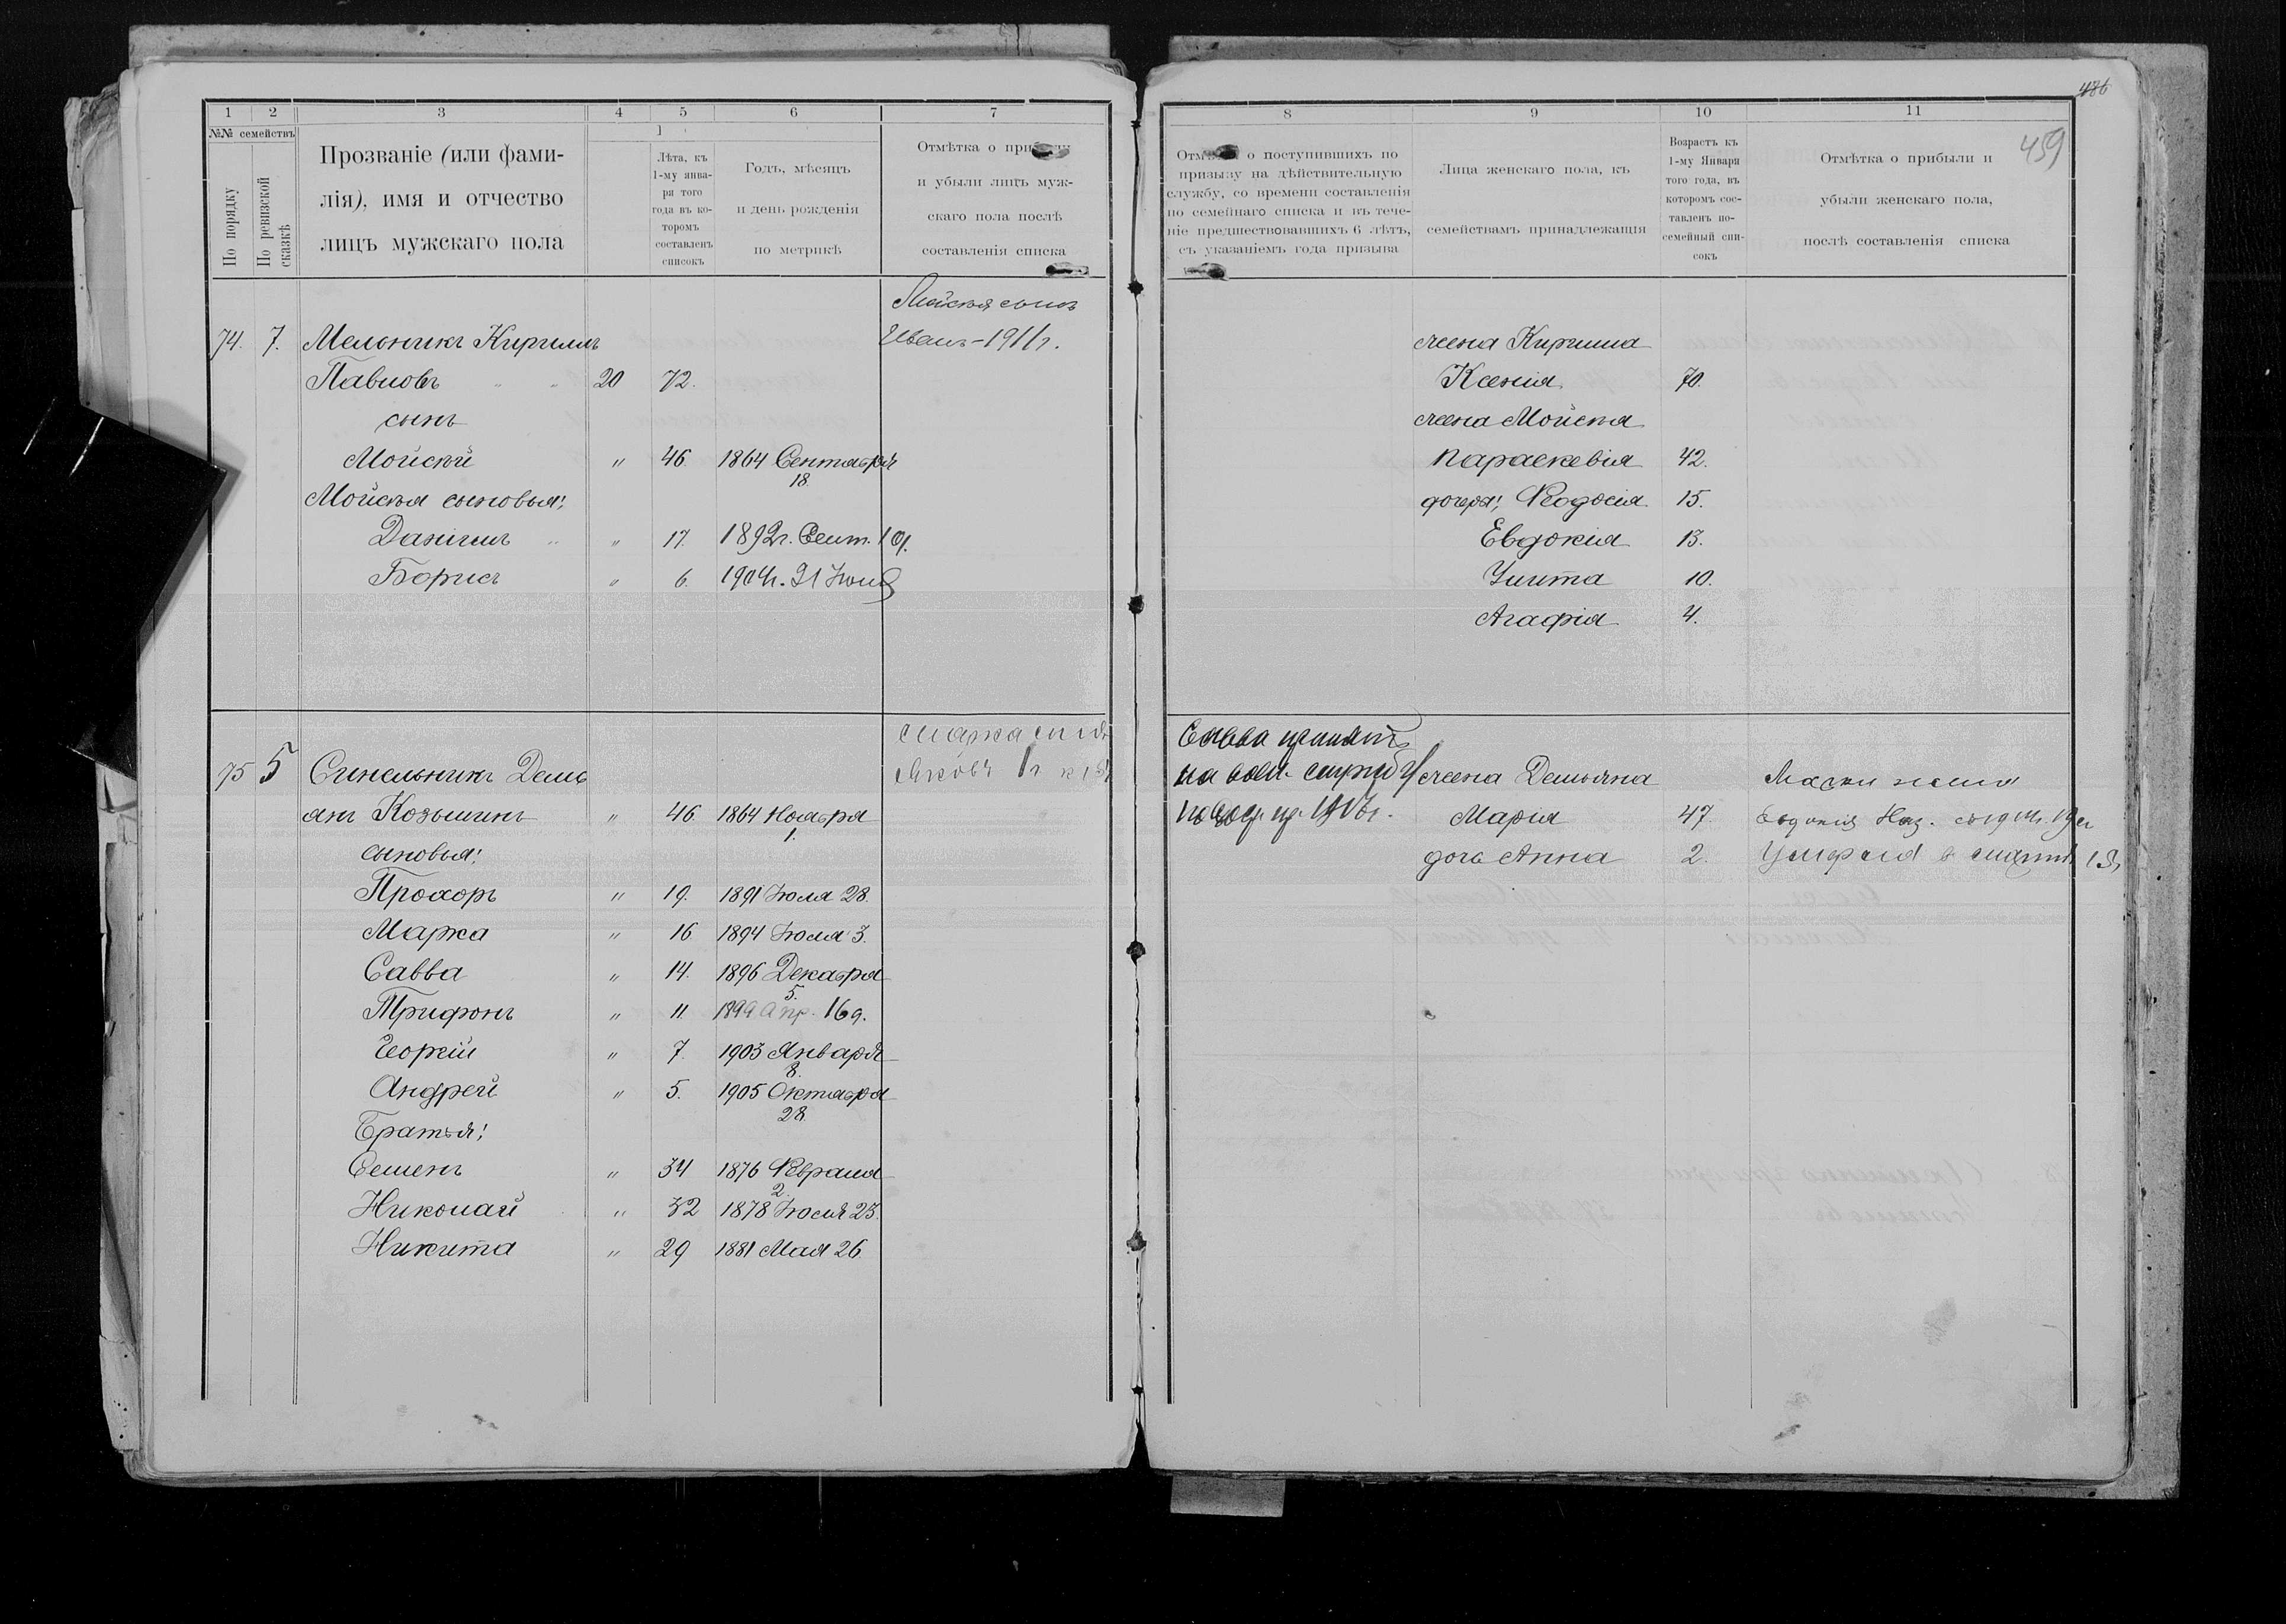 1 2 3 4 5 6 7
№№ семействъ
По порядку
По ревизской сказкѣ
Прозваніе (или фами-
лія), имя и отчество
лицъ мужскаго пола
1
Лѣта, къ
1-му янва-
ря того
года въ ко-
торомъ
составленъ
списокъ
Годъ, мѣсяцъ
и день рожденія
по метрикѣ
Отмѣтка о
и убыли лицъ муж-
скаго пола послѣ
составленія списка
Мойсея сынъ
Иванъ - 1911 г.
74. 7. Мельникъ Кириллъ
Павловъ " " 20 72.
сынъ
Мойсей " 46. 1864 Сентября
18.
Мойсея сыновья:
Даніилъ " " 17. 1892 г. Сент.
Борисъ " 6. 1904 г. 21
75 5 Синельникъ Демь
янъ Козьминъ " 46 1864 Ноября
1.
сыновья:
Прохоръ " 19. 1891 Іюля 28.
Марка " 16 1894 Іюля 3.
Савва " 14. 1896 Декабря
5.
Трифонъ " 11. 1899 Апр. 16 д.
Георгій " 7. 1903 Января
8.
Андрей " 5. 1905 Октября
28.
Братья:
Семенъ " 34 1876 Февраля
2.
Николай " 32 1878 Іюля 23.
Никита " 29 1881 Мая 26.
Марка
Яковъ
486
459
8 9 10 11
о поступившихъ по
призыву на дѣйствительную
службу, со времени составленія
по семейнаго списка и въ тече-
ніе предшествовавшихъ 6 лѣтъ,
съ указаніемъ года призыва
Лица женскаго пола, къ
семействамъ принадлежащія
Возрастъ къ
1-му Января
того года, въ
которомъ сос-
тавленъ по-
семейный спи-
сокъ
Отмѣтка о прибыли и
убыли женскаго пола,
послѣ составленія списка
жена Кирилла
Ксенія 70.
жена Мойсея
Параскевія 42.
дочеря: Феодосія 15.
Евдокія 13.
Улита 10.
Агафія 4.
Савва принятъ
на воен. службу
жена Демьяна
Марія 47.
дочь Анна 2.
Марки жена
Евдокія
Умерла в